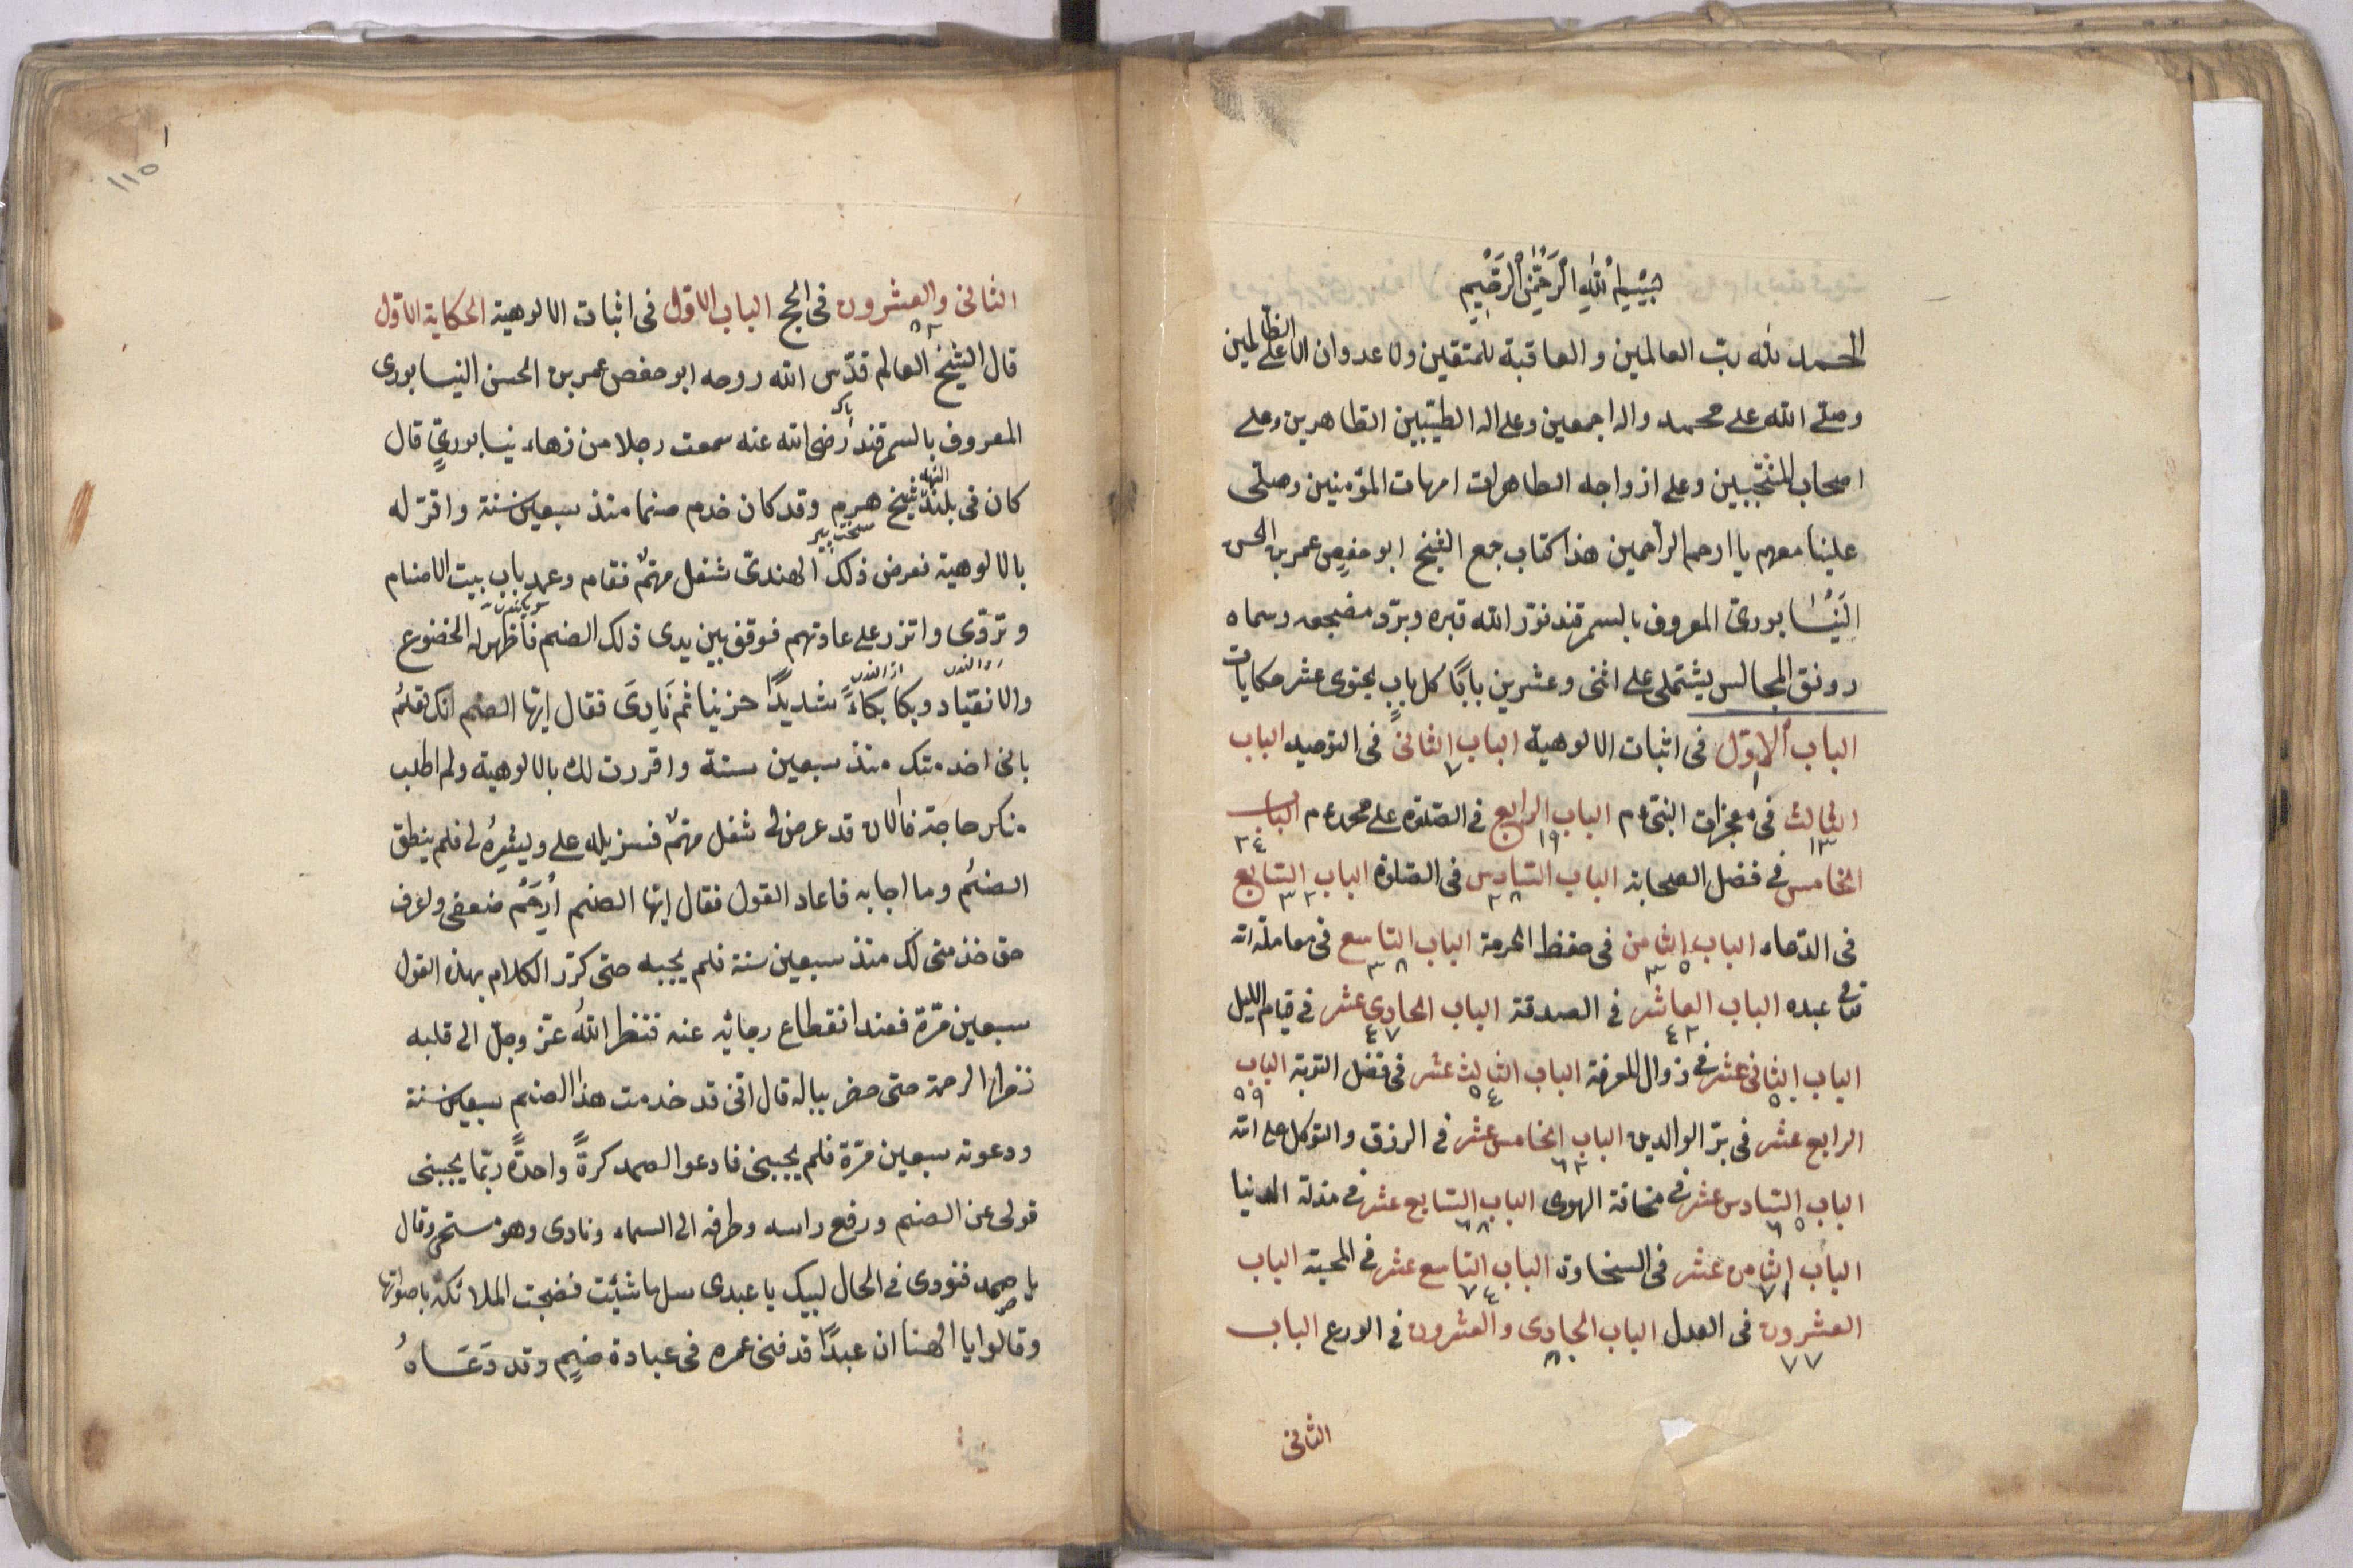 بسم الله الرحمن الرحيم
الحمد لله رب العالمين والعاقبة للمتقين ولا عدوان الا على الظالمين
وصلى الله على محمد واله اجمعين وعلى اله الطيّبين الطاهرين وعلى
اصحاب المنتجبين وعلى ازواجه الطاهرات امهات المؤمنين وصلّى
علينا معهم يا ارحم الراحمين هذا كتاب جمع الشيخ ابو حفص عمر بن الحسن
النيسابورىّ المعروف بالسمرقند نوّر الله قبره وبرّد مضجعه وسماه
رونق المجالس يشتمل على اثنى وعشرين بابًا كل باب يحتوى عشر حكايات
الباب الاوّل فى اثبات الالوهية الباب الثانى فى التوحيد الباب
١ ٧
الثالث فى معجزات النبى ع م الباب الرابع فى الصلوة على محمد ع م الباب
١٣ ١٩ ٢٤
الخامس فى فضل الصحابة الباب السّادس فى الصلوة الباب السّابع
٢٨ ٣٢
فى الدّعاء الباب الثامن فى حفظ الحرمة الباب التاسع فى معاملة الله
٣٥ ٣٨
مع عبده الباب العاشر فى الصدقة الباب الحادى عشر فى قيام الليل
٤٢ ٤٧
الباب الثانى عشر فى زوال المعرفة الباب الثالث عشر فى فضل التوبة الباب
٥٤ ٥٩
الرابع عشر فى برّ الوالدين الباب الخامس عشر فى الرزق والتوكل على الله
٦٢
الباب السّادس عشر فى مخافة الهوى الباب السّابع عشر فى مذلة الدنيا
٦٥ ٦٨
الباب الثامن عشر فى السخاوة الباب التاسع عشر فى المحبة الباب
٧١ ٧٤
العشرون فى العدل الباب الحادى والعشرون فى الورع الباب
٧٧ ٨٠
الثانى
١
١١٥
الثانى والعشرون فى الحج الباب الاوّل فى اثبات الالوهية الحكاية الاوّل
٨٢
قال الشيخ العالم قدّس الله روحه ابو حفص عمر بن الحسن النيسابورى
المعروف بالسمرقند رضى الله عنه سمعت رجلا من زهاء نيسابورىّ قال
كان فى بلد الهند شيخ هرم وقد كان خدم صنما منذ سبعين سنة واقرّ له
سخت پير
بالالوهية فعرض ذلك الهندىّ شغل مهمّ فقام وعمد باب بيت الاصنام
وتردّى واتزر على عادتهم فوقف بين يدى ذلك الصنم فاظهر له الخضوع
والانقياد وبكا بكاءً شديدًا حزينا ثم نَادَى فقال ايّها الصنم انك تعلمُ
بانى اخدمتك منذ سبعين سنة واقررت لك بالالوهية ولم اطلب
منك حاجة فالان قد عرض لى شغل مهمّ فسزيله على ويسّره لى فلم ينطق
الصنمُ وما اجابه فاعاد القول فقال ايّها الصنم اُرْحَمْ ضعفى ولعرف
حق خذمتى لك منذ سبعين سنة فلم يجبه حتى كرّر الكلام بهذه القول
سبعين مرّة فعند انقطاع رجائه عنه فنظر اللهُ عزّ وجلّ الى قلبه
نظر الرحمة حتى حضر بباله قال انى قد خدمت هذا الصنم سبعين سنة
ودعوته سبعين مرّة فلم يجيبنى فادعوا الصمد كرةً واحدةً ربّما يجيبنى
فولى عن الصنم ورفع راسه وطرفه الى السماء ونادى وهو مستحى وقال
يا صمد فنودى فى الحال لبيك يا عبدى سل ما شئت فضجت الملائكة باصواتها
وقالوا يا الهنا ان عبدًا قد فنى عمره فى عبادة صنمٍ وقد دَعَاهُ